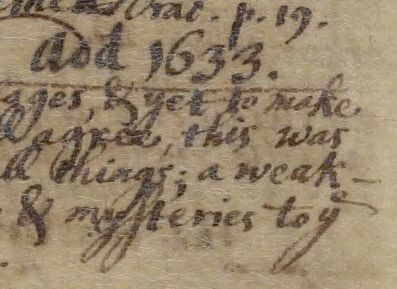 Crac. p. 19.
dod 1633.
ages, & yet to make
agree, this was
ll things; a weak-
& mysteries to yͤ